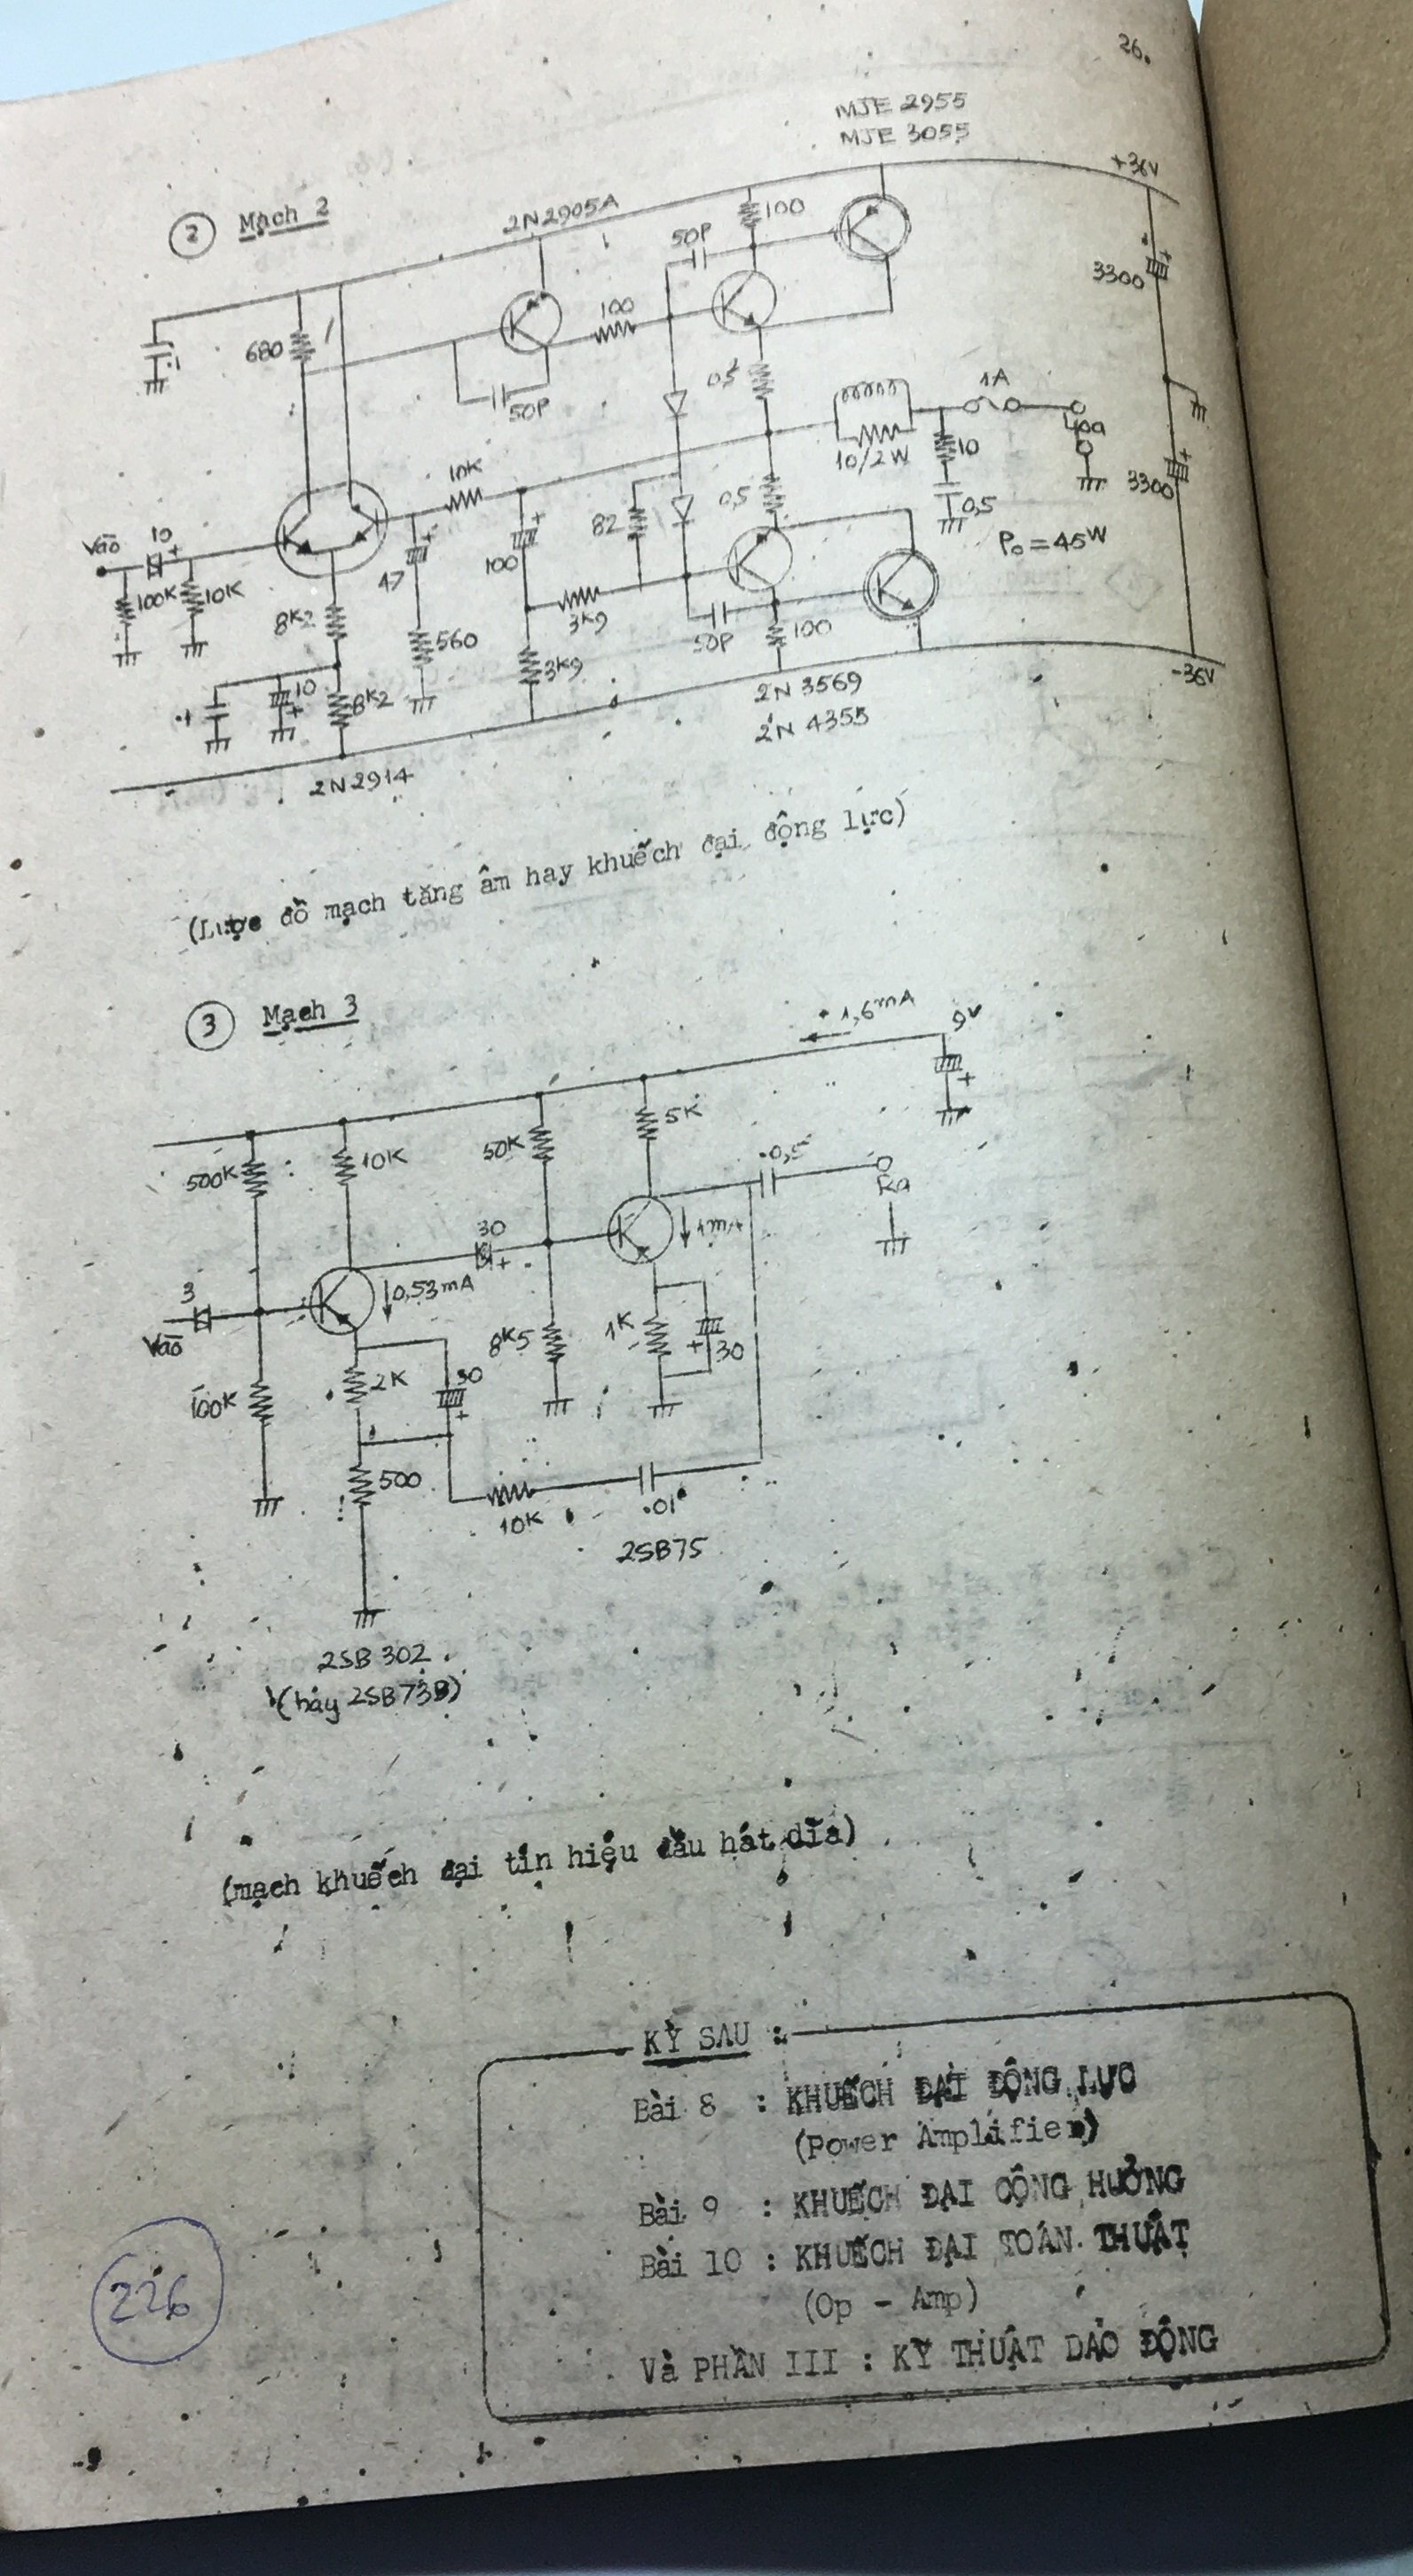 26.
MJE 2955
MJE 3055
+36V
2 Mạch 2
2N2905A
100
50P
3300
680
100
.1
50P
0,5
1A
10/2W
10
10K
0,5
3300
82
0,5
Vào
10
47
100
P₀ = 45W
100K
10K
8K2
3K9
50P
100
560
3K9
-36V
.1
10
8K2
2N 3569
2N 4355
2N2914
(Lược đồ mạch tăng âm hay khuếch đại động lực)
3 Mạch 3
1,6mA
9V
500K
10K
50K
5K
0,5
Ra
30
1mA
3
0,53mA
Vào
8K5
1K
30
100K
2K
30
500
10K
.01
2SB75
2SB 302
(hay 2SB73B)
(mạch khuếch đại tín hiệu đầu hát dĩa)
KỲ SAU :
Bài 8 : KHUẾCH ĐẠI ĐỘNG LỰC
(Power Amplifier)
Bài 9 : KHUẾCH ĐẠI CỘNG HƯỞNG
Bài 10 : KHUẾCH ĐẠI TOÁN THUẬT
(Op - Amp)
Và PHẦN III : KỸ THUẬT DAO ĐỘNG
226